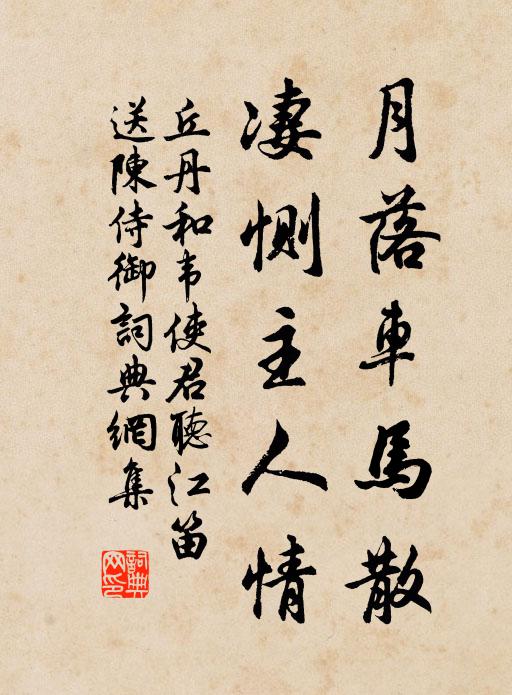 月落車馬散
凄惻主人情
丘丹和韦使君聽江笛
送陳侍御詞典網集
詞典
网印